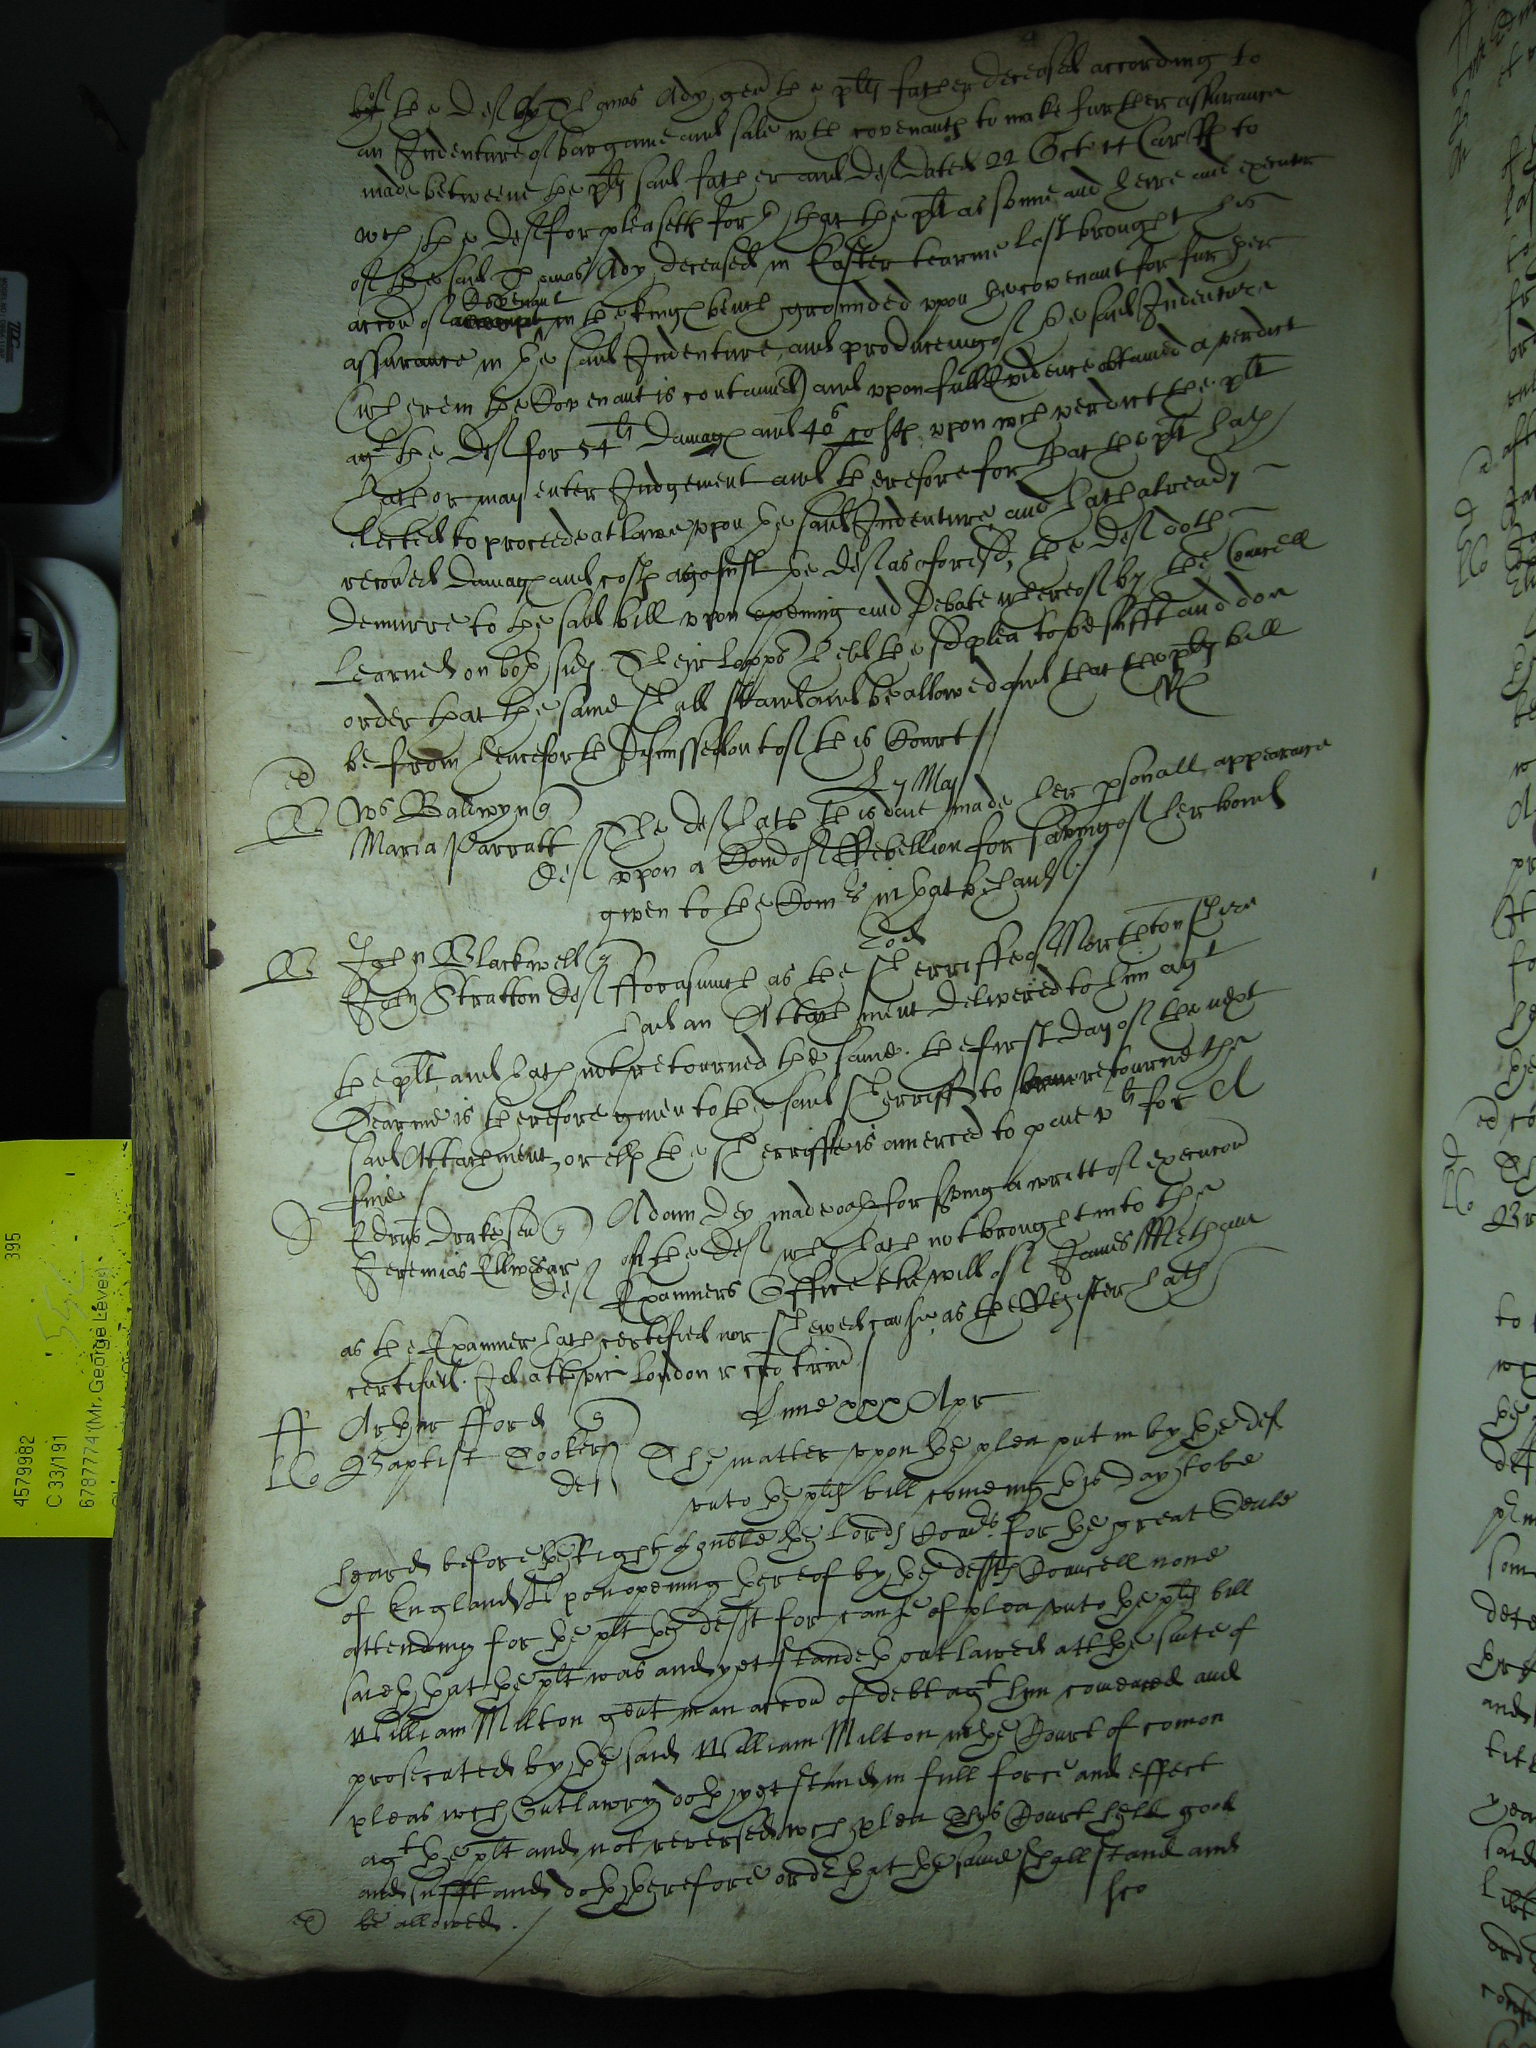 the def by Thomas Ady gent the plts father deceased according to
an Indenture of bargaine and sale wth covenants to make further assurance
made betweene the plts said father and def dated 22 Octr 14 Car Rs to
wch the def for plea seth forth that the plt as sonne and heire and executr
of the said Thomas Ady deceased in Easter tearme last brought his
accon of Covenant in the kings bench grounded upon the covenant for further
assurance in the said Indenture and produceing of the said Indenture
(wherein the Covenant is contained) and upon full Evidence obtained a verdict
agt the def for 54li damages and 46s costs upon wch verdict the plt
hath or may enter Judgement and therefore for that the plt hath
elected to proceede at lawe upon the said Indenture and hath already
recoved damages and costs against the def as aforesd, the def doth
demurre to the said bill upon opening and debate whereof by the Councell
learned on both sides Their Lopps held the sd plea to be sufft and doe
order that the same shall stand and be allowed and that the plts bill
be from henceforth dismissed out of this Court
27 May
Ws Baldwyn q
Maria Parratt
def
The def hath this daie made her psonall appearance
upon a Comd of Rebellion for saving of her bond
given to the Comrs in that behaulf.
Eod
John Blackwell q
John Stratton def
fforasmuch as the Sherriffe of Northtonshire
had an Attachment delivered to him agt
the plt and hath not retourned the same. the first day of the next
Tearme is therefore given to the said Sherriff to retourne the
said Attachment, or els the Sherriffe is amerced to paie vli for a
fine
Edrus Drake sen q
Jeremias Ellwear
def
Adam Dey made oath for sving a writt of execucon
on the def wch hath not brought into the
Examiners Office the will of James Metham
as the Examiner hath certified nor shewed cause as the Register hath
certified. Id att vic London r cro trin
Lune xxx Apr
Arthur fford q
Baptist Tookers
def
The matter upon the plea put in by the def
unto the plts bill comeing this day to be
heard before the Right honble the Lords Comrs for the great Seale
of England Upon opening thereof by the defts Councell none
attending for the plt the deft for cause of plea unto the plts bill
saieth that the plt was and yet standeth outlawed att the suite of
William Milton gent in an accon of debt agt him comenced and
prosecuted by the said William Milton in the Court of comon
pleas wch Outlawry doth yet stand in full force and effect
agt the plt and not reversed wch plea This Court held good
and sufft and doth therefore order that the same shall stand and
be allowed.
4579982
C 33/191
395
6787774 (Mr. George Leven)